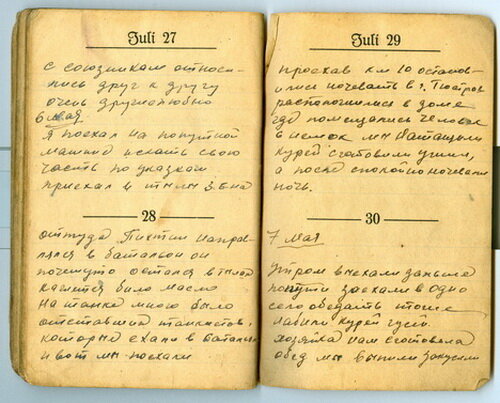 Juli 27
с союзникам относи-
лись друг к другу
очень дружелюбно
6 мая
Я поехал на попутной
машине искать свою
часть по указкам
приехал в тылы 3. б-на
28
оттуда Пихтин направ-
лялся в батальон он
почемуто остался в тылах
кажется было масло
На танке много было
отставших танкистов,
которые ехали в баталь
и вот мы поехали
Juli 29
проехав км 10 останов-
ились ночевать в г.
расположились в доме
где помещались человек
немок мы
курей сготовили ужин,
а после спокойно ночевали
ночь.
30
7 мая
Утром выехали дальше
попути заехали в одно
село обедать тоже
набили курей гусей.
хозяйка нам сготовила
обед мы выпили закусили